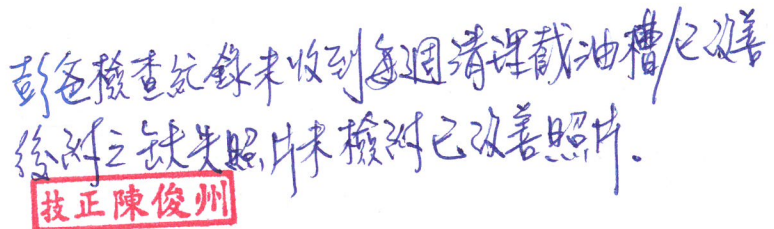 彭爸檢查紀錄未收到每週清理截油槽/已改善
後附之缺失照片未檢附已改善照片.
技正陳俊州